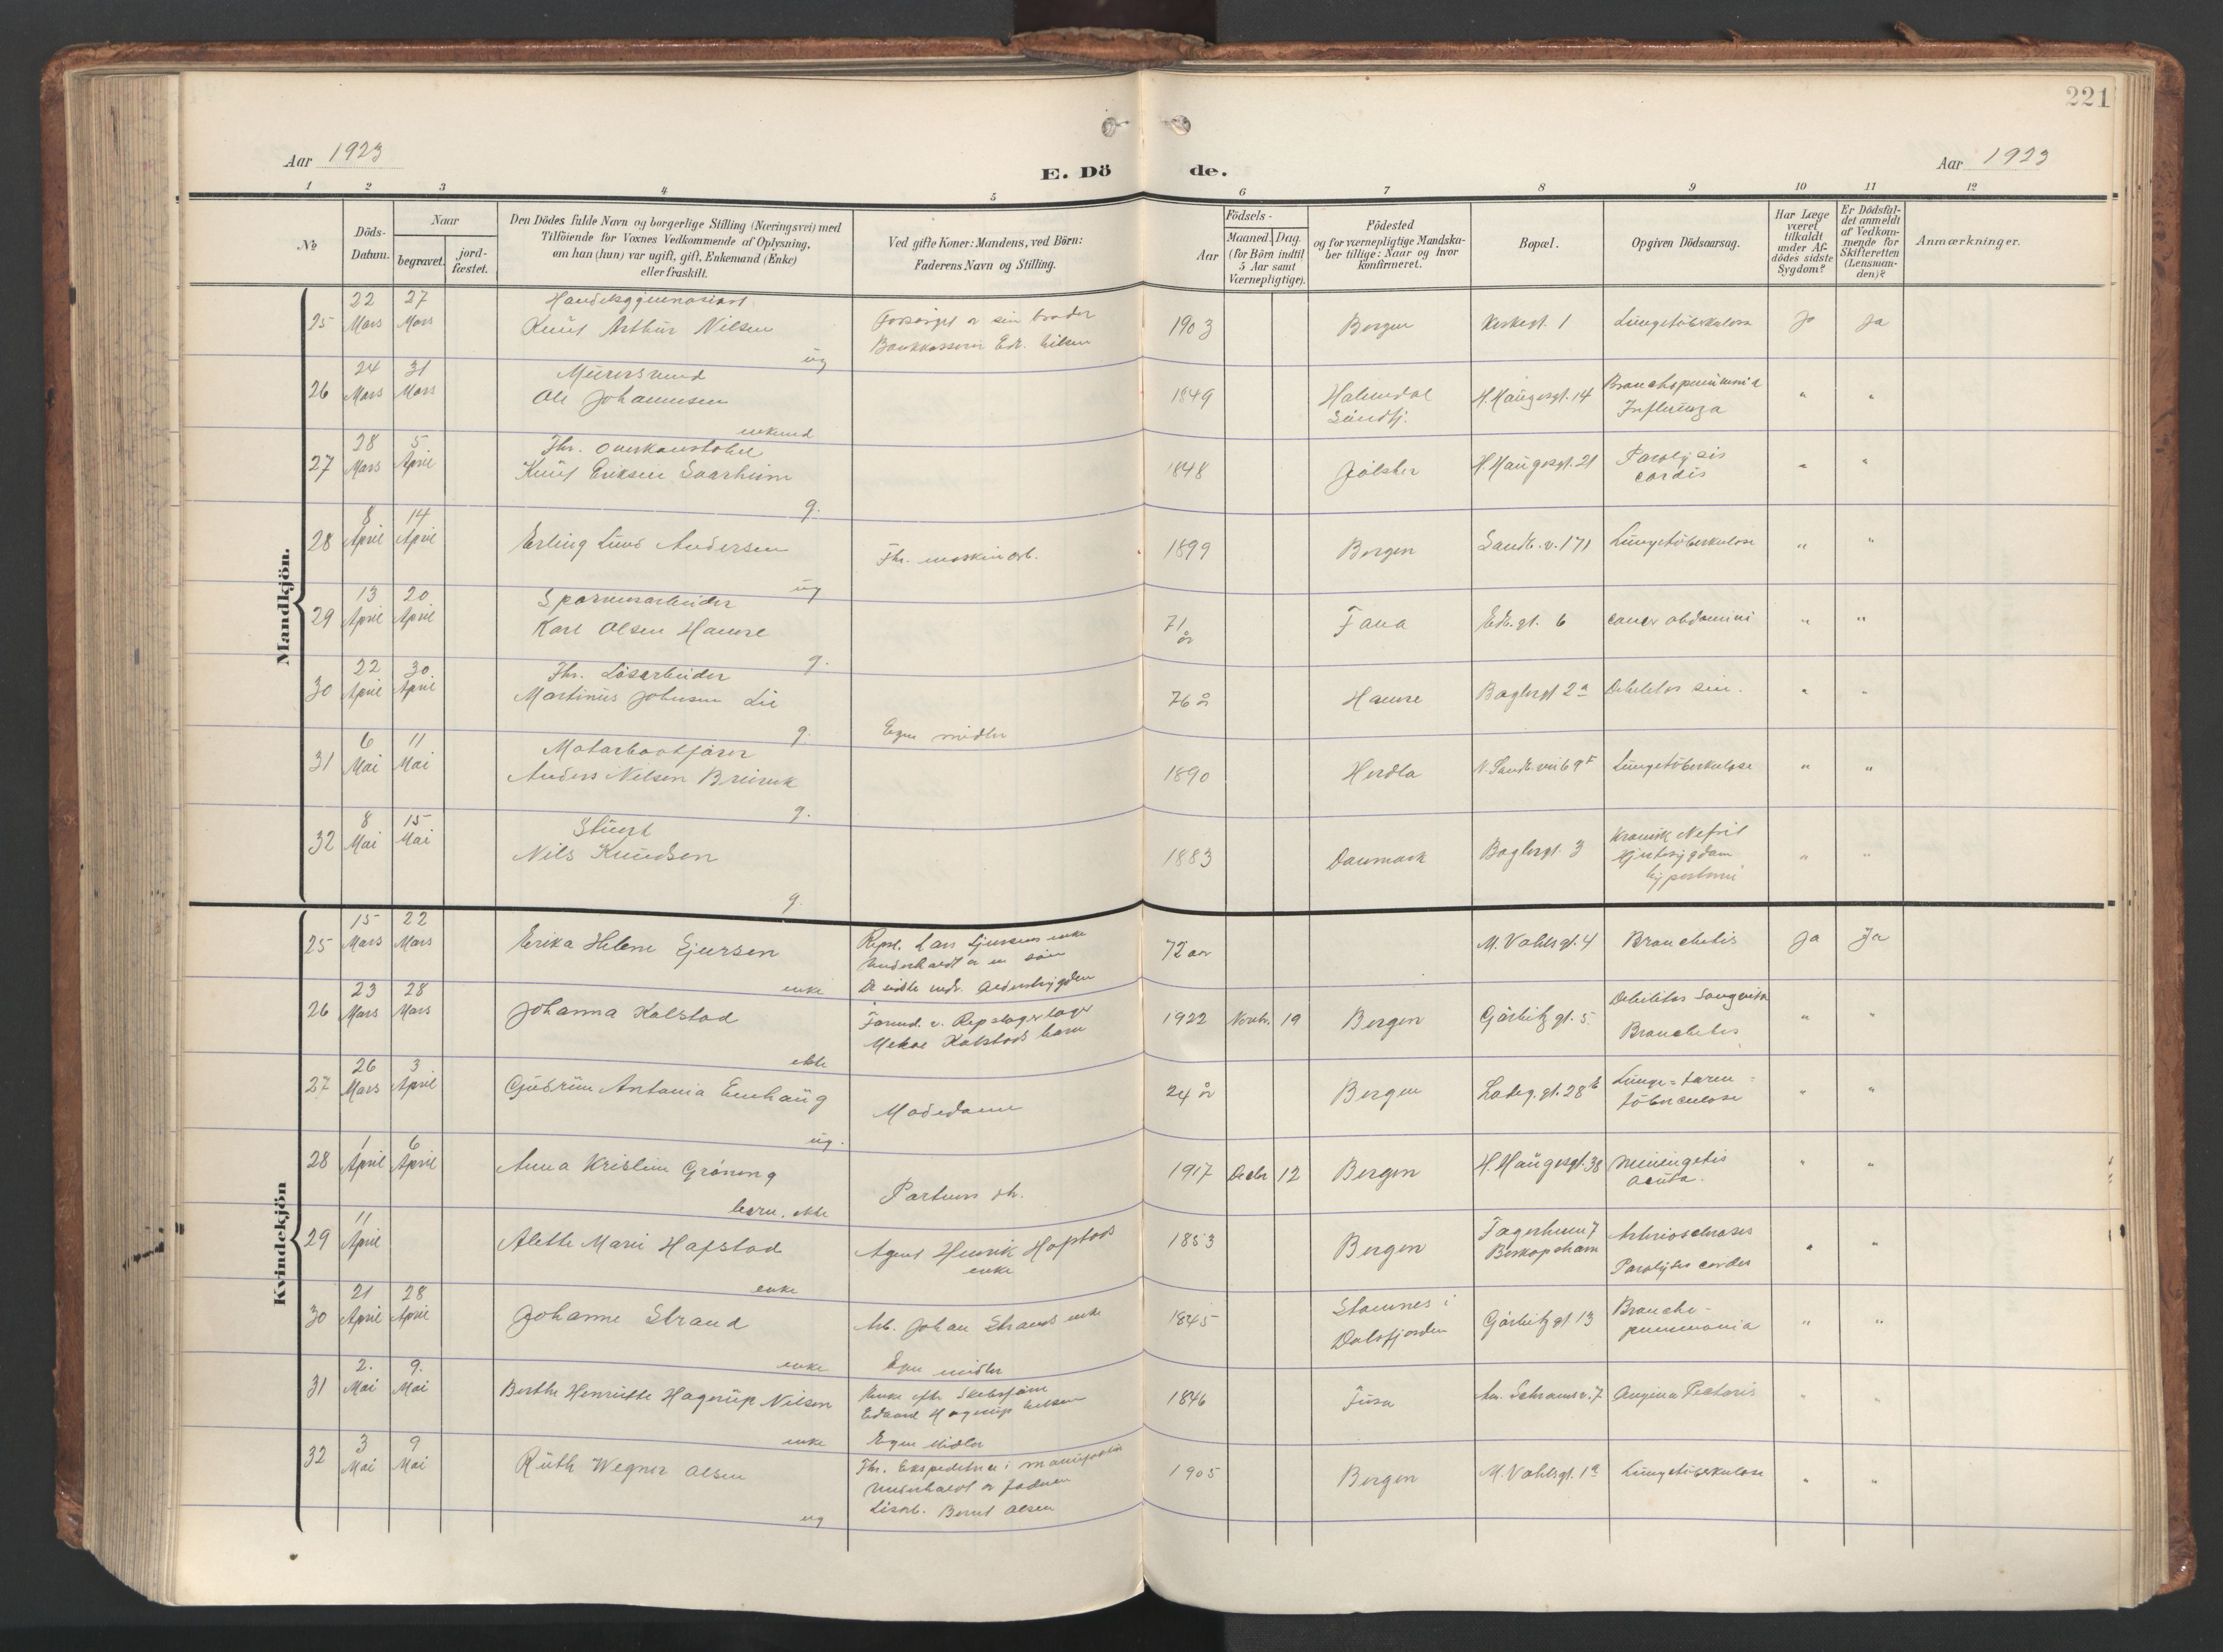 221
Aar 1923
E. Dö
de.
Aar 1923
1 2 3 4 5 6 7 8 9 10 11 12
No
Döds-
Datum.
Naar
begravet.
jord-
fæstet.
Den Dödes fulde Navn og borgerlige Stilling (Næringsvei) med
Tilföiende for Voxnes Vedkommende af Oplysning,
om han (hun) var ugift, gift, Enkemand (Enke)
eller fraskilt.
Ved gifte Koner: Mandens, ved Börn:
Faderens Navn og Stilling.
Födsels-
Aar
Maaned.
Dag.
(for Börn indtil
5 Aar samt
Værnepligtige).
Födested
og for værnepligtige Mandska-
ber tillige: Naar og hvor
konfirmeret.
Bopæl.
Opgiven Dödsaarsag.
Har Læge
været
tilkaldt
under Af-
dödes sidste
Sygdom?
Er Dödsfal-
det anmeldt
af Vedkom-
mende for
Skifteretten
(Lensman-
den)?
Anmærkninger.
Mandkjön.
25
22 Mars
27 Mars
Handelsgymnasiast
Knut Arthur Nilsen
ug
Forsørget av sin broder
Bankkasserer Edv. Nilsen
1903
Bergen
Kirkegt. 1
Lungetuberkulose
Ja
Ja
26
24 Mars
31 Mars
Murersvend
Ole Johannesen
enkemd
1849
Holmedal
Sundfj.
H. Haugesgt. 14
Bronchopneumonia
Influenza
" "
27
28 Mars
5 April
Fhv. Overkonstabel
Knut Eriksen Saarheim
g.
1848
Jölster
H. Haugesgt. 21
Paralysis
cordis
" "
28
8 April
14 April
Erling Lund Andersen
ug
Fhv. maskinarb.
1899
Bergen
Sandv. v. 171
Lungetuberkulose
" "
29
13 April
20 April
Sporveisarbeider
Karl Olsen Hamre
g.
71 år
Fana
Edv. gt. 6
cancer abdomini
" "
30
22 April
30 April
Fhv. Løsarbeider
Martinus Johnsen Lie
g.
76 å
Hamre
Baglergt 2a
Debilitas sen.
" "
31
6 Mai
11 Mai
Motorbaatfører
Anders Nilsen Breivik
g.
Egne midler
1890
Herdla
N. Sandv. vei 69 F
Lungetuberkulose
" "
32
8 Mai
15 Mai
Stuert
Nils Knudsen
g.
1883
Danmark
Baglergt. 3
Kronisk Nefrit
Hjertesygdom
" "
Kvindekjön
25
15 Mars
22 Mars
Erika Helene Gjersen
enke
Repsl. Lars Gjersens enke
Underholdt av en søn
De sidste mdr. Aldershygden
72 aar
M. Vahlsgt. 4
Bronchitis
Ja
Ja
26
23 Mars
28 Mars
Johanna Kalstad
ekte
Formd. v. Repslager
Kalstads barn
1922 Novbr. 19
Bergen
Görbitzgt. 5.
Debilitas
Bronchitis
" "
27
26 Mars
3 April
Gudrun Antonia Emhaug
ug.
Motedame
24 år
Bergen
Ladeg. gt. 28b
Lunge- tarm-
tuberculose
" "
28
1 April
6 April
Anna Kristine Gröning
barn. ekte
1917 Decbr 12
Bergen
H. Haugesgt. 38
Meningitis
acuta.
" "
29
11 April
Alette Marie Hafstad
enke
Agent Henrik Hafstads
enke
1853
Bergen
Fagerheim 7
Biskopshavn
Arterioschrosis
Paralysis cordis
" "
30
21 April
28 April
Johanne Strand
enke
Arb. Johan Strands enke
1845
Stamnes i
Dalsfjorden
Görbitzgt 13
Broncho-
pneumonia
" "
31
2. Mai
9. Mai
Berthe Henriette Hagerup Nilsen
enke
Egne midler
Enke efter Skibsfører
Edvard Hagerup Nilsen
1846
Fusa
An. Schramsv. 7
Angina Pectoris
" "
32
3 Mai
9 Mai
Ruth Wegner Olsen
ug
Egne Midler
Fhv. Ekspeditrice i manufaktur
Underholdt av faderen
Bernt Olsen
1905
Bergen
M. Vahlsgt. 1a
Lungetuberkulose
" "